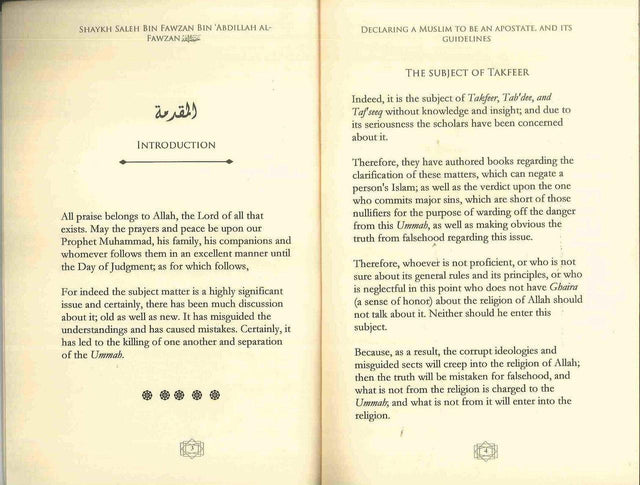 Shaykh Saleh Bin Fawzan Bin 'Abdillah al-
Fawzan
المقدمة
Introduction
All praise belongs to Allah, the Lord of all that
exists. May the prayers and peace be upon our
Prophet Muhammad, his family, his companions and
whomever follows them in an excellent manner until
the Day of Judgment; as for which follows,
For indeed the subject matter is a highly significant
issue and certainly, there has been much discussion
about it; old as well as new. It has misguided the
understandings and has caused mistakes. Certainly, it
has led to the killing of one another and separation
of the Ummah.
3
Declaring a Muslim to be an Apostate, and its
guidelines
The subject of Takfeer
Indeed, it is the subject of Takfeer, Tab'dee, and
Taf'seeq without knowledge and insight; and due to
its seriousness the scholars have been concerned
about it.
Therefore, they have authored books regarding the
clarification of these matters, which can negate a
person's Islam; as well as the verdict upon the one
who commits major sins, which are short of those
nullifiers for the purpose of warding off the danger
from this Ummah, as well as making obvious the
truth from falsehood regarding this issue.
Therefore, whoever is not proficient, or who is not
sure about its general rules and its principles, or who
is neglectful in this point who does not have Ghaira
(a sense of honor) about the religion of Allah should
not talk about it. Neither should he enter this
subject.
Because, as a result, the corrupt ideologies and
misguided sects will creep into the religion of Allah;
then the truth will be mistaken for falsehood, and
what is not from the religion is charged to the
Ummah, and what is not from it will enter into the
religion.
4